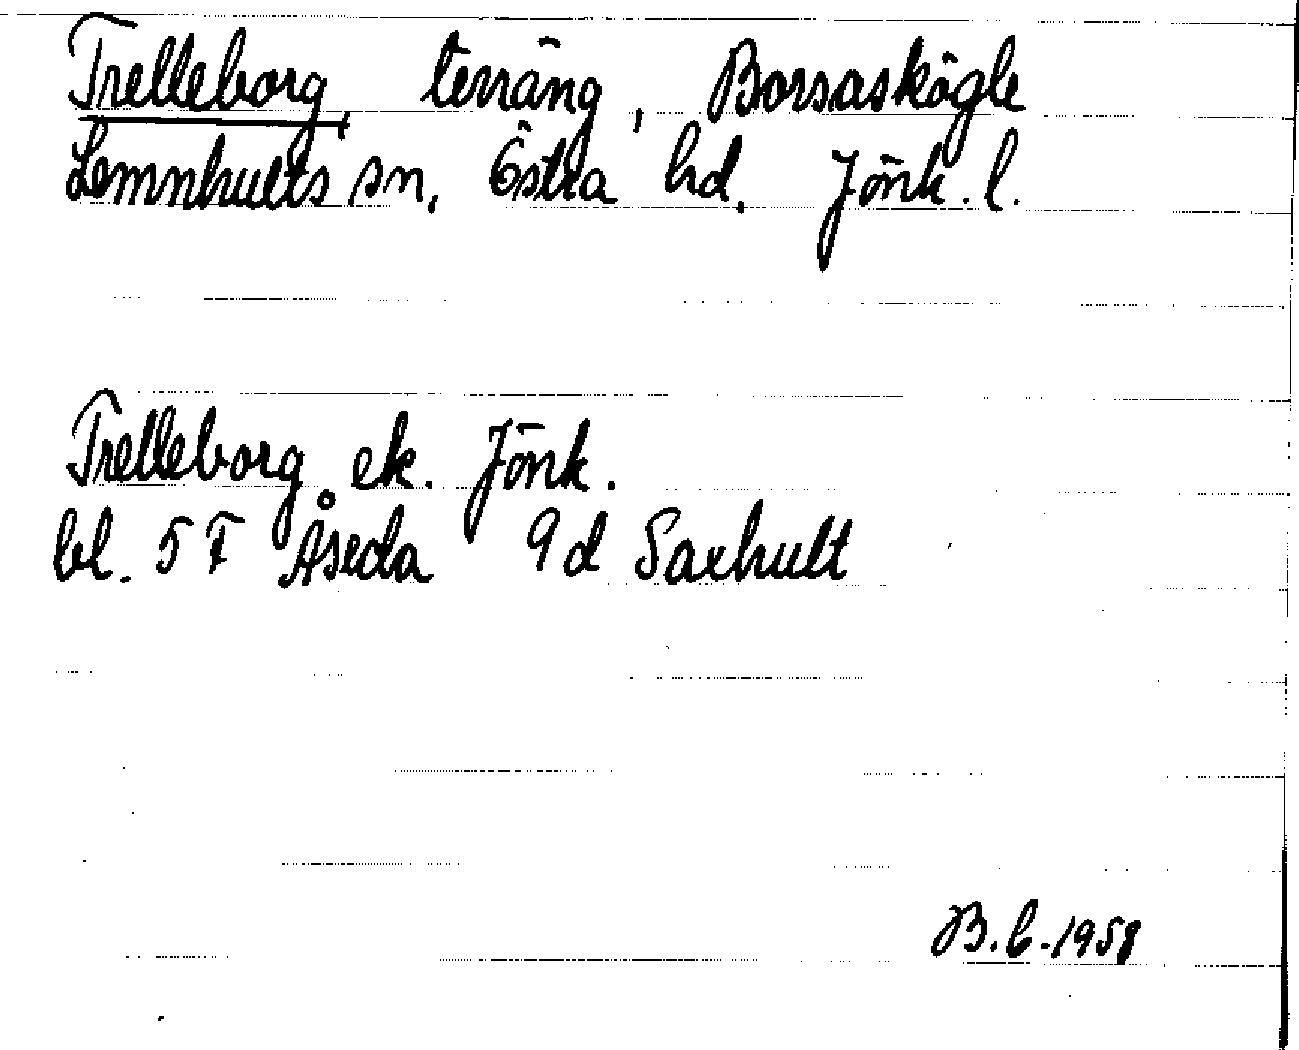 Trelleborg, terräng, Borsaskögle
Lemnhults sn, Östra hd, Jönk. l.
Trelleborg ek. Jönk.
bl. 5 F Åseda 9d Saxhult
B.b. 1958